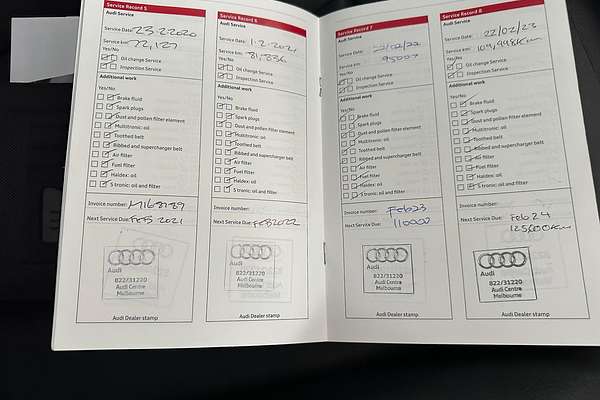 Service Record 5
Audi Service
Service Date: 23-2-2020
Service km: 72,127
Yes/No
Oil change Service
Inspection Service
Additional work
Yes/No
Brake fluid
Spark plugs
Dust and pollen filter element
Multitronic: oil
Toothed belt
Ribbed and supercharger belt
Air filter
Fuel filter
Haldex: oil
S tronic: oil and filter
Invoice number:
Next Service Due: FEB 2021
Audi
822/31220
Audi Centre
Melbourne
Audi Dealer stamp
Service Record 6
Audi Service
Service Date: 1-2-2021
Service km: 81,836
Yes/No
Oil change Service
Inspection Service
Additional work
Yes/No
Brake fluid
Spark plugs
Dust and pollen filter element
Multitronic: oil
Toothed belt
Ribbed and supercharger belt
Air filter
Fuel filter
Haldex: oil
S tronic: oil and filter
Invoice number:
Next Service Due: FEB 2022
Audi
822/31220
Audi Centre
Melbourne
Audi Dealer stamp
Service Record 7
Audi Service
Service Date: 22/02/22
Service km: 95007
Yes/No
Oil change Service
Inspection Service
Additional work
Yes/No
Brake fluid
Spark plugs
Dust and pollen filter element
Multitronic: oil
Toothed belt
Ribbed and supercharger belt
Air filter
Fuel filter
Haldex: oil
S tronic: oil and filter
Invoice number:
Feb 23
Next Service Due: 110000
Audi
822/31220
Audi Centre
Melbourne
Audi Dealer stamp
Service Record 8
Audi Service
Service Date: 22/02/23
Service km: 109,998Km
Yes/No
Oil change Service
Inspection Service
Additional work
Yes/No
Brake fluid
Spark plugs
Dust and pollen filter element
Multitronic: oil
Toothed belt
Ribbed and supercharger belt
Air filter
Fuel filter
Haldex: oil
S tronic: oil and filter
Invoice number:
Next Service Due: Feb 24
125,000 Km
Audi
822/31220
Audi Centre
Melbourne
Audi Dealer stamp